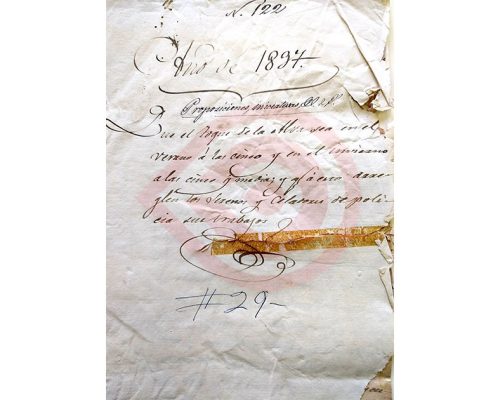 N. 122
Año de 1837.
Proposiciones
Que el toque de la Alva sea en el
verano á las cinco y en el invierno
a las cinco y media; y q.e á eso arre-
glen los Serenos y Celadores de poli-
cia sus trabajos
#29-